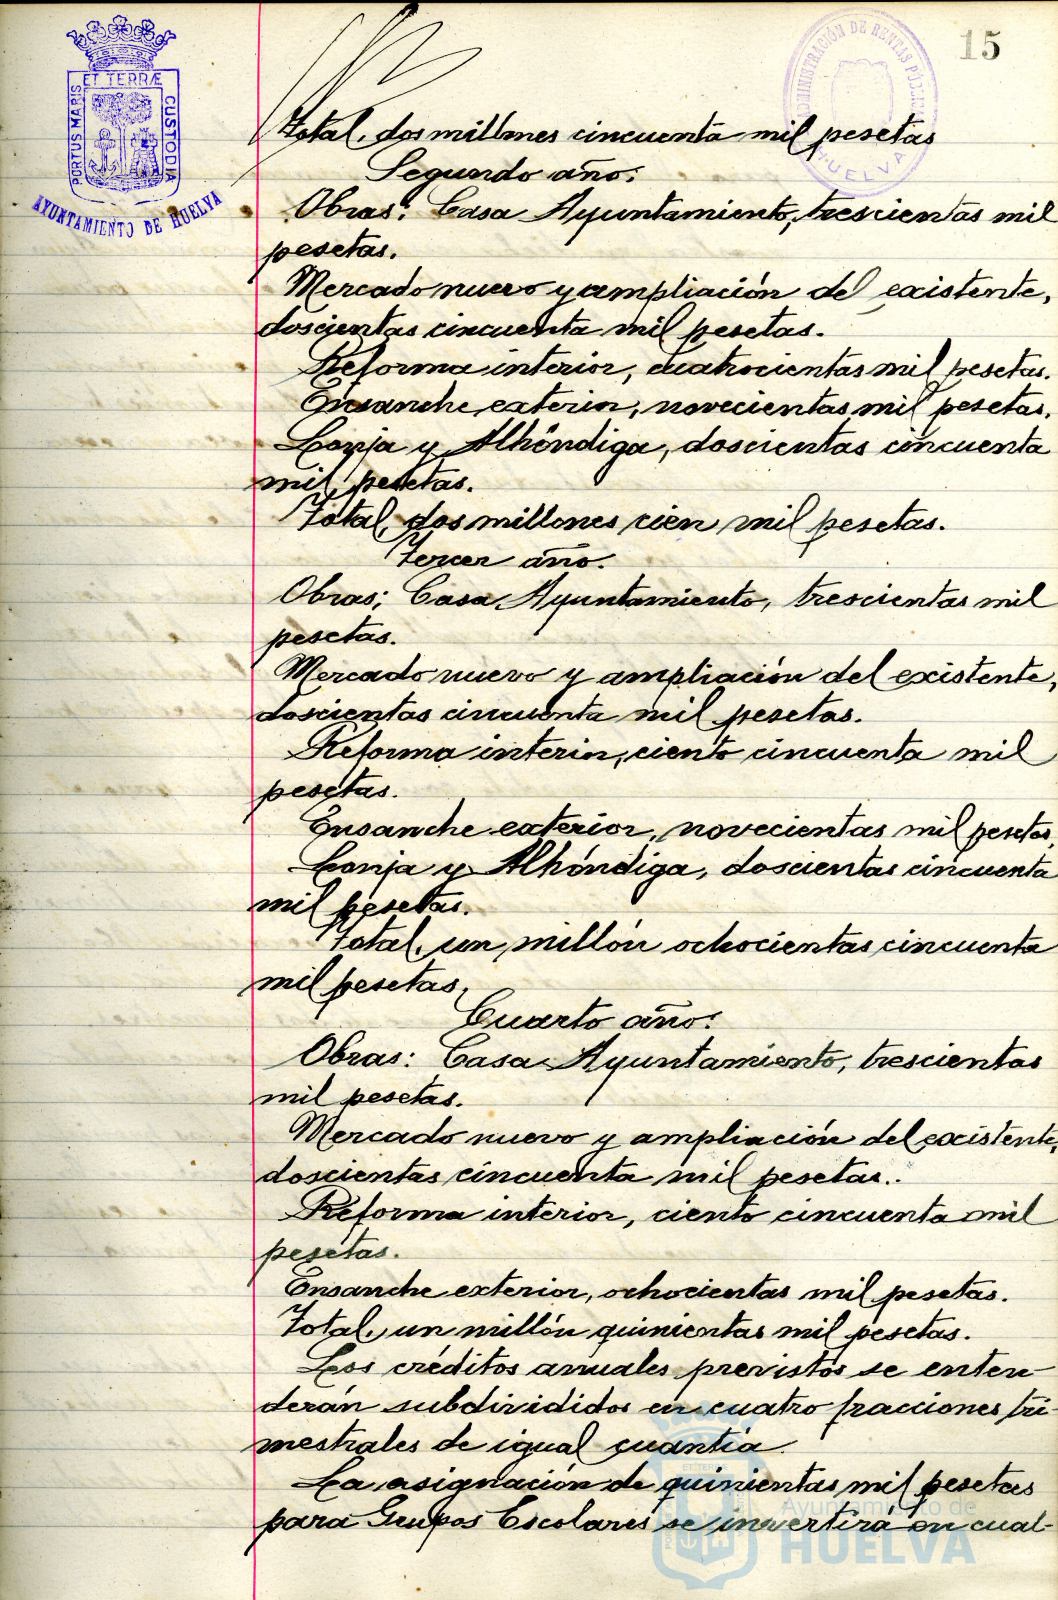 15
ET TERRÆ
PORTUS MARIS
CUSTODIA
AYUNTAMIENTO DE HUELVA
ADMINISTRACIÓN DE RENTAS PÚBLICAS
HUELVA
Total, dos millones cincuenta mil pesetas
Segundo año:
Obras: Casa Ayuntamiento, trescientas mil
pesetas.
Mercado nuevo y ampliación del existente,
doscientas cincuenta mil pesetas.
Reforma interior, cuatrocientas mil pesetas.
Ensanche exterior, novecientas mil pesetas.
Lonja y Alhóndiga, doscientas cincuenta
mil pesetas.
Total, dos millones cien mil pesetas.
Tercer año.
Obras; Casa Ayuntamiento, trescientas mil
pesetas.
Mercado nuevo y ampliación del existente,
doscientas cincuenta mil pesetas.
Reforma interior, ciento cincuenta mil
pesetas.
Ensanche exterior, novecientas mil pesetas,
Lonja y Alhóndiga, doscientas cincuenta
mil pesetas.
Total, un millón ochocientas cincuenta
mil pesetas,
Cuarto año:
Obras: Casa Ayuntamiento, trescientas
mil pesetas.
Mercado nuevo y ampliación del existente,
doscientas cincuenta mil pesetas.
Reforma interior, ciento cincuenta mil
pesetas.
Ensanche exterior, ochocientas mil pesetas.
Total, un millón quinientas mil pesetas.
Los créditos anuales previstos se enten-
derán subdivididos en cuatro fracciones tri-
mestrales de igual cuantía.
La asignación de quinientas mil pesetas
para Grupos Escolares se invertirá en cual-
Ayuntamiento de
HUELVA